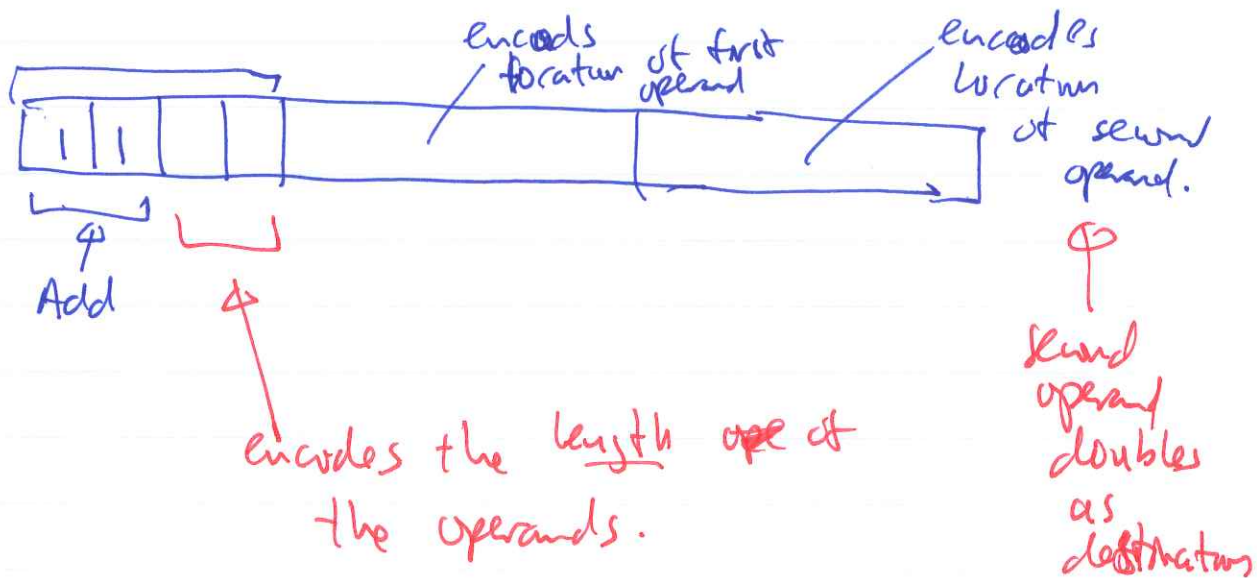 encods
location of first
operand
encodes
location
of second
operand.
1 1
Add
encodes the length of
the operands.
second
operand
doubles
as
destination